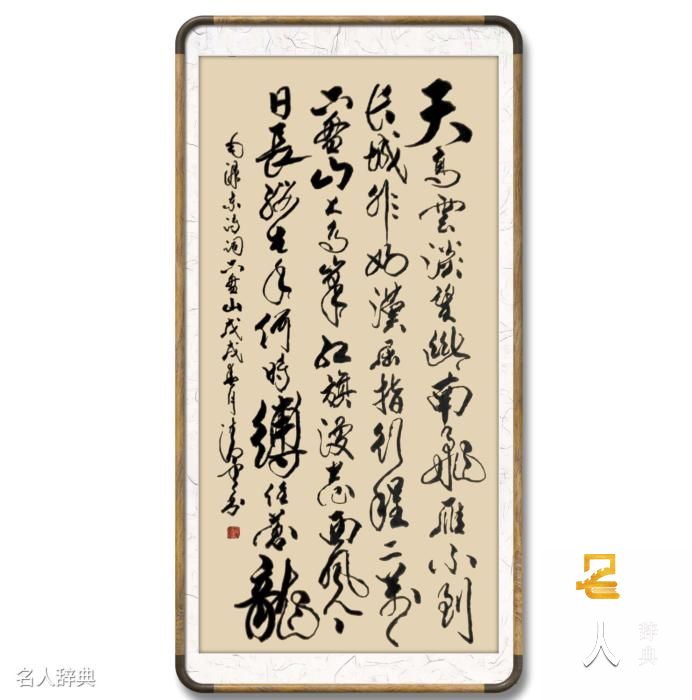 天高雲淡望斷南飛雁不到
长城非好漢屈指行程二萬
六盤山上高峯红旗漫卷西风今
日長纓在手何時縛住蒼龍
毛澤东诗词六盤山戊戌春月清
名人辞典
名人辞典